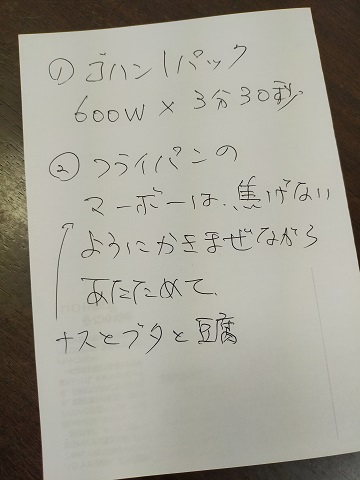 ① ゴハン1パック
600W × 3分30秒
② フライパンの
マーボーは、焦げない
ようにかきまぜながら
あたためて、
ナスとブタと豆腐